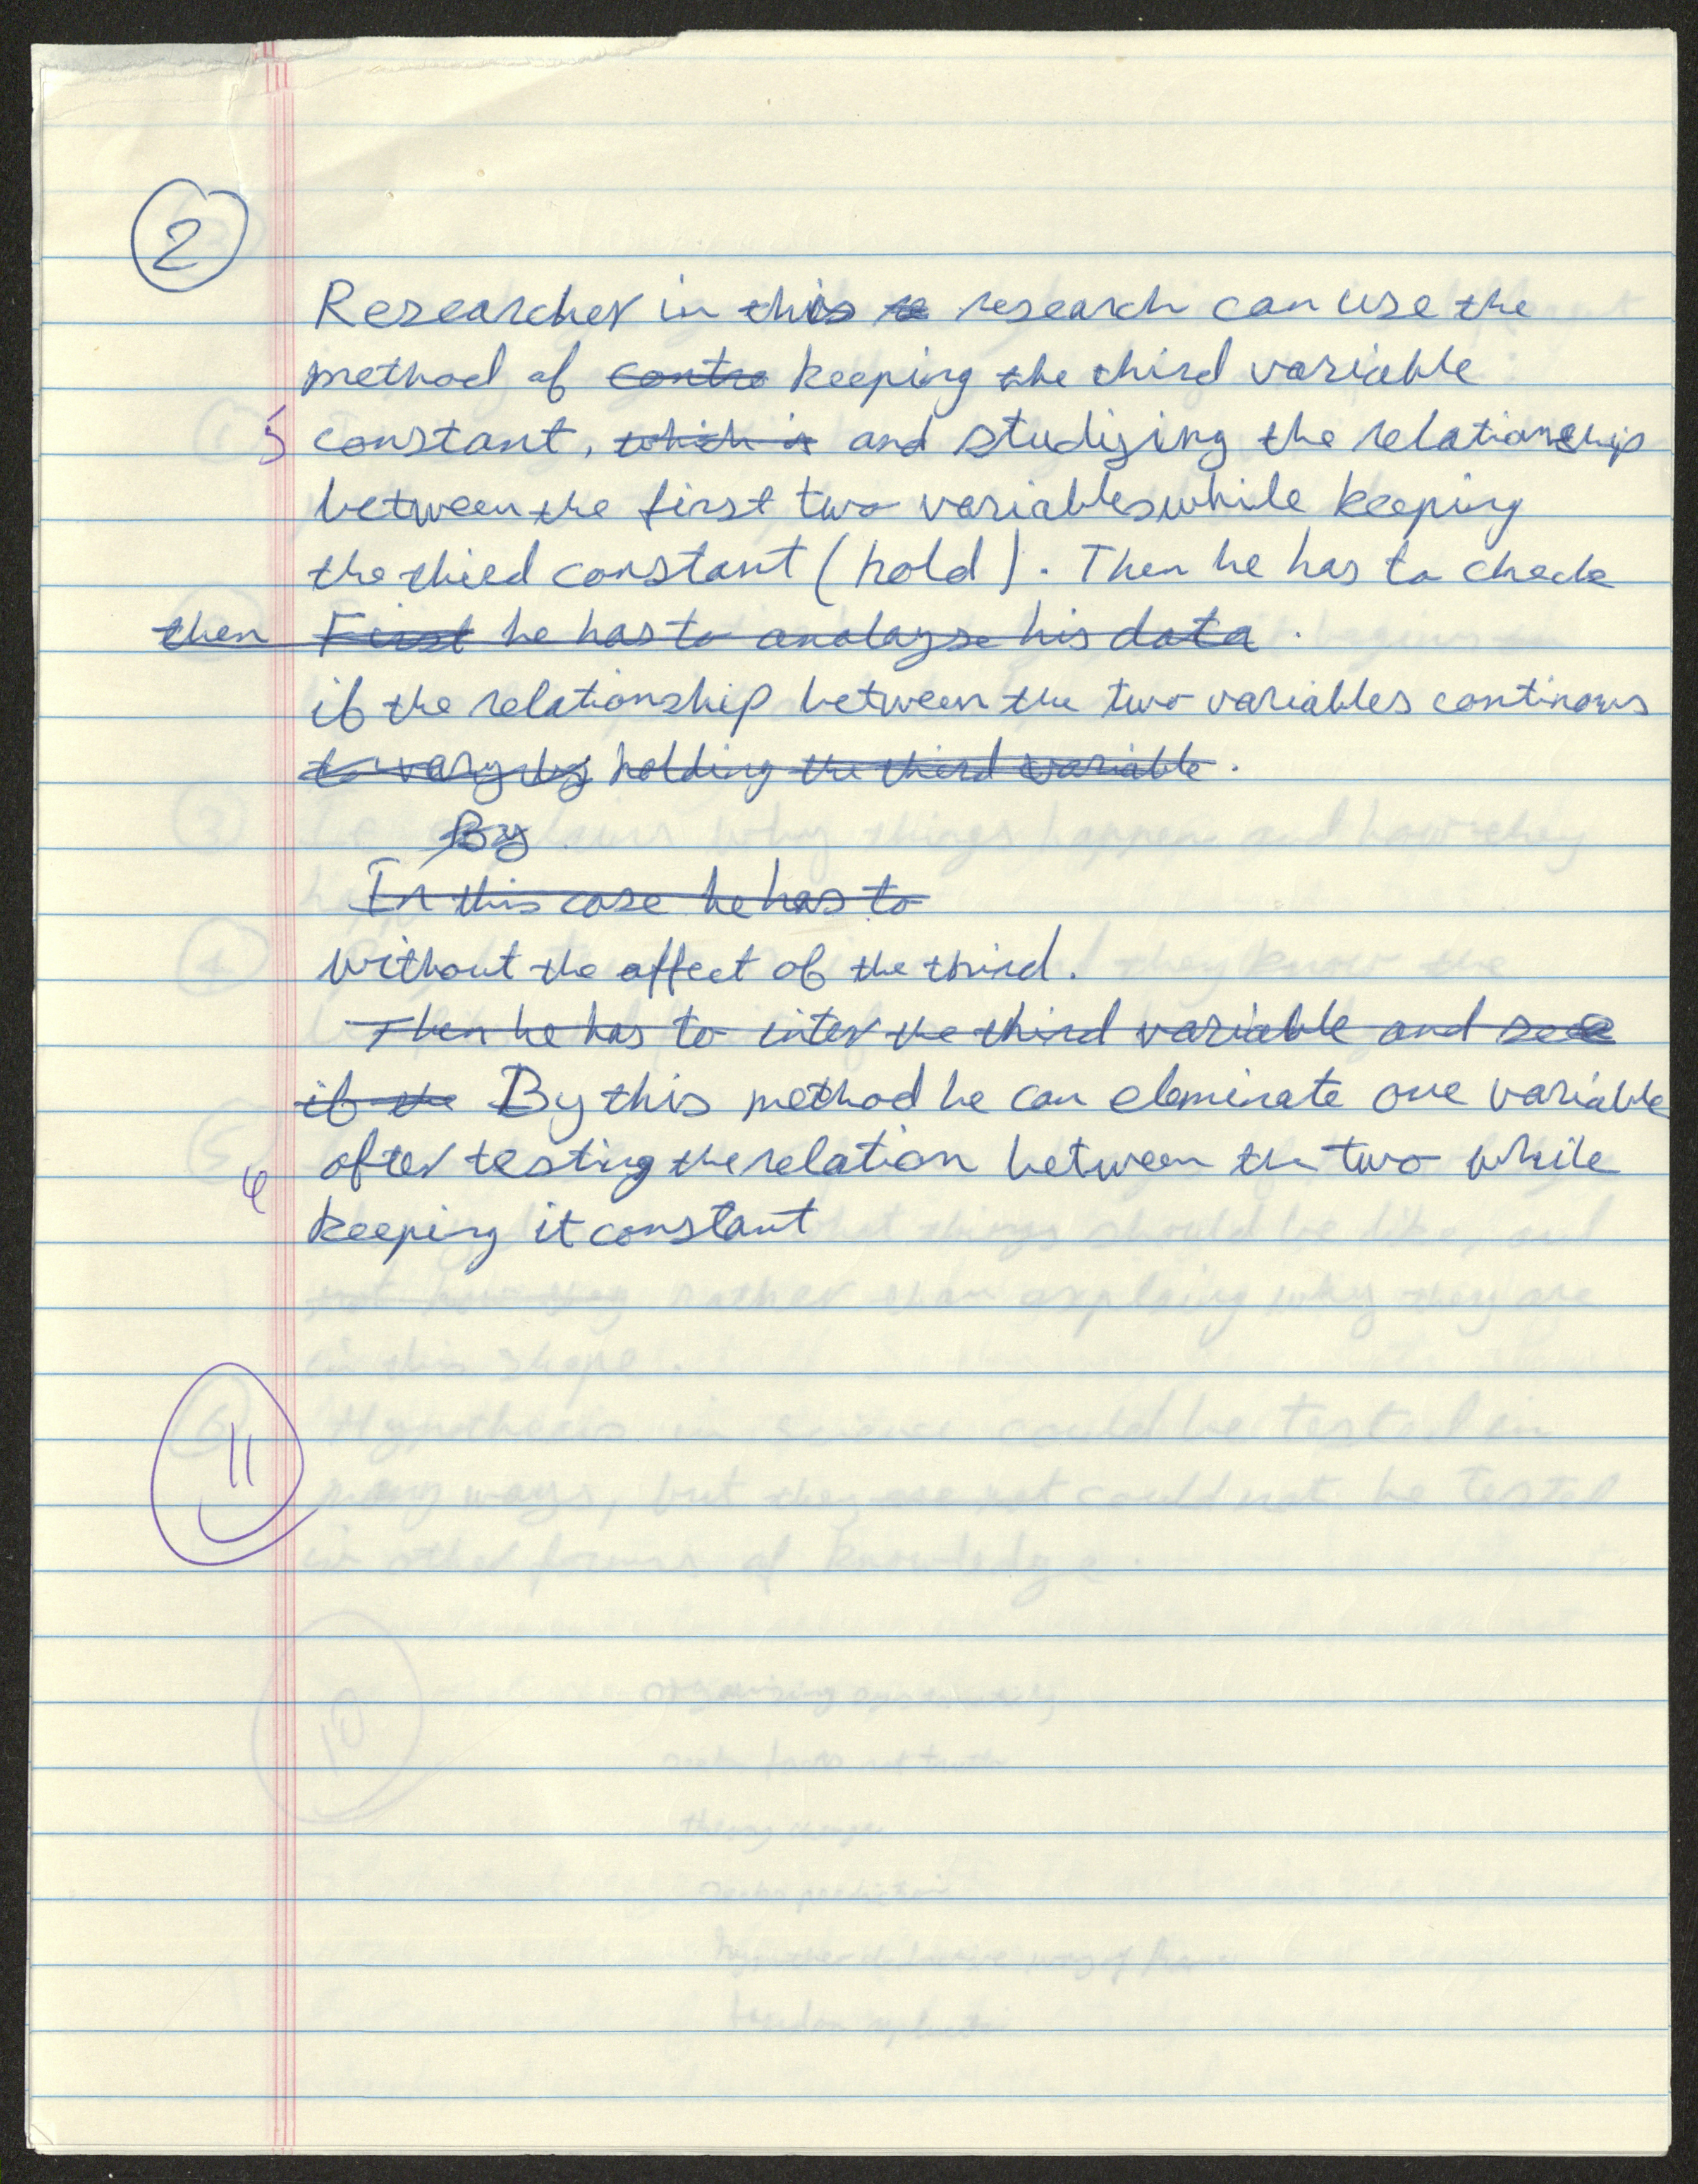 2
Researcher in this re research can use the
method of contro keeping the third variable
5 constant, which is and studizing the relationship
between the first two variables while keeping
the thied constant (hold). Then he has to check
then First he has to analayse his data.
if the relationship between the two variables continous
to vary by holding the third variable.
By
In this case he has to
without the affect of the third.
Then he has to inter the third variable and see
if the By this method he can eleminate one variable
after testing the relation between the two while
6 keeping it constant
11